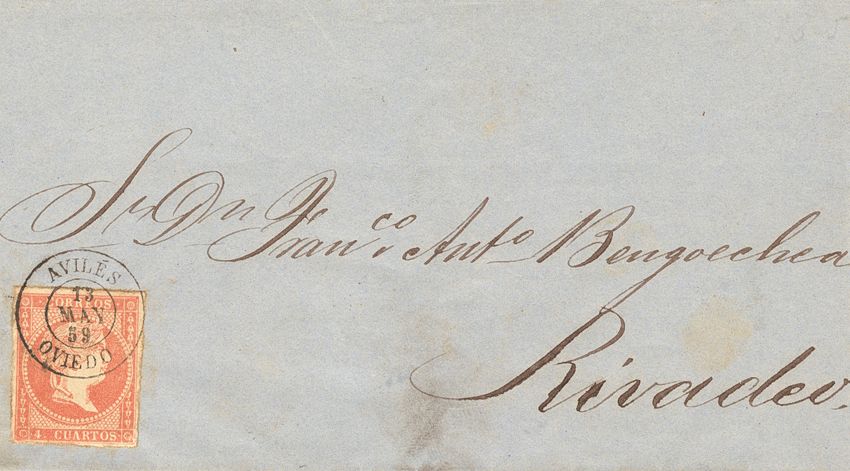 Sr Dn Franco. Anto Bengoechea
Rivadeo.
AVILÉS
13
MAY
59
OVIEDO
CORREOS
4 CUARTOS